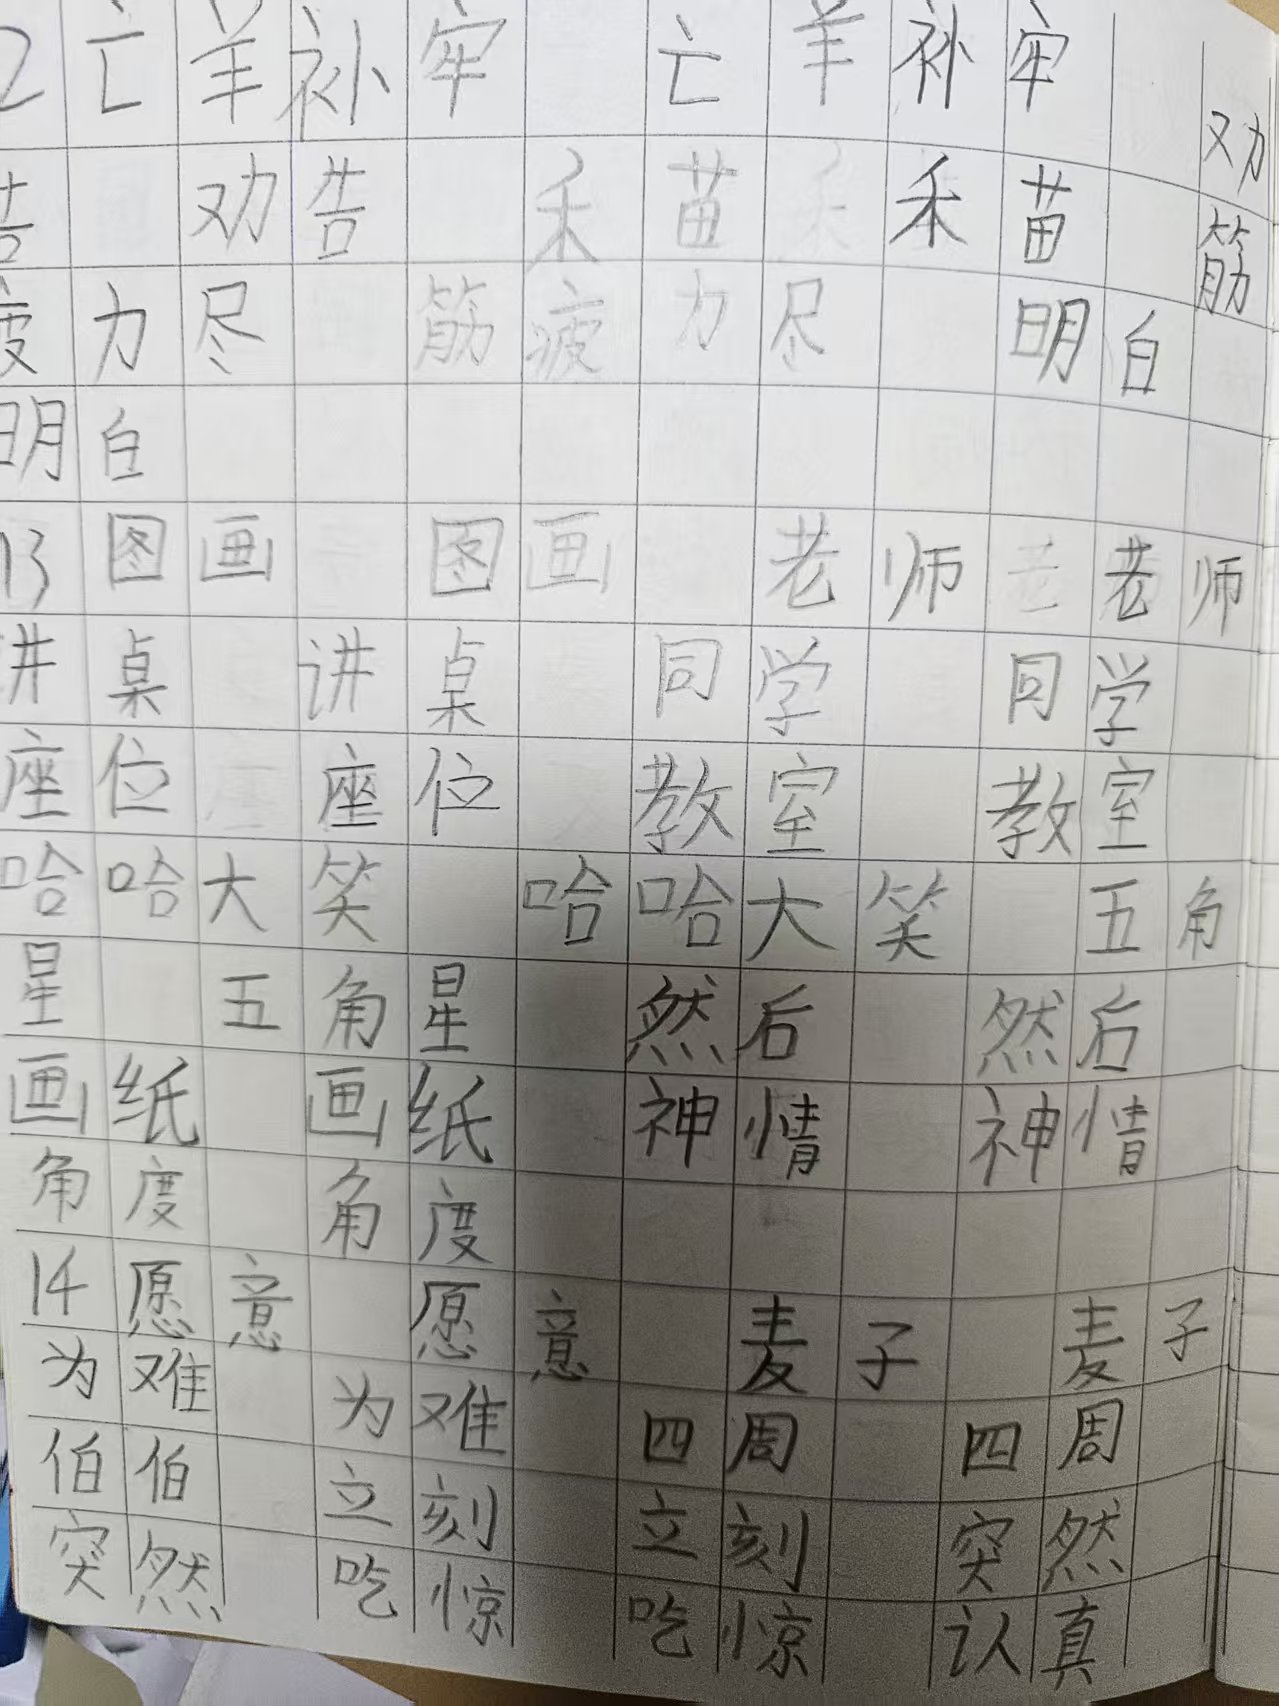 2 亡羊补牢 亡羊补牢 劝
告 劝告 禾苗 禾苗 筋
疲力尽 筋疲力尽 明白
明白
13 图画 图画 老师 老师
讲桌 讲桌 同学 同学
座位 座位 教室 教室
哈哈大笑 哈哈大笑 五角
星 五角星 然后 然后
画纸 画纸 神情 神情
角度 角度
14 愿意 愿意 麦子 麦子
为难 为难 四周 四周
伯伯 立刻 立刻 突然
突然 吃惊 吃惊 认真